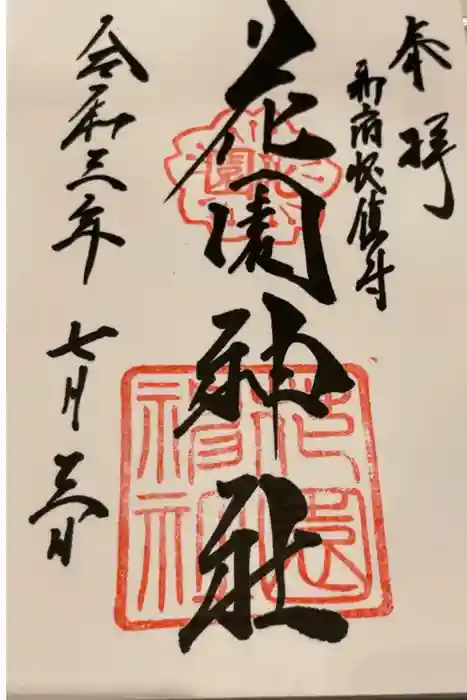 奉拝
新宿総鎮守
花園神社
令和三年 七月 三日
花園
花園